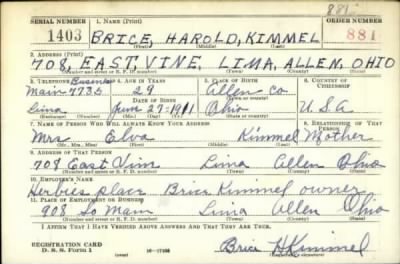 881
SERIAL NUMBER 1. NAME (Print) ORDER NUMBER
1403 BRICE, HAROLD, KIMMEL 881
(First) (Middle) (Last)
2. ADDRESS (Print)
708, EAST, VINE, LIMA, ALLEN, OHIO
(Number and street or R. F. D. number) (Town) (County) (State)
3. TELEPHONE 4. AGE IN YEARS 5. PLACE OF BIRTH 6. COUNTRY OF CITIZENSHIP
Main 7735 29 Allen Co
DATE OF BIRTH
Lima June 27-1911 Ohio U.S.A
7. NAME OF PERSON WHO WILL ALWAYS KNOW YOUR ADDRESS 8. RELATIONSHIP OF THAT PERSON
Mrs Elva Kimmel Mother
(Mr., Mrs., Miss) (First) (Middle) (Last)
9. ADDRESS OF THAT PERSON
708 East Vine Lima Allen Ohio
(Number and street or R. F. D. number) (Town) (County) (State)
10. EMPLOYER'S NAME
Herbies place Brice Kimmel owner
11. PLACE OF EMPLOYMENT OR BUSINESS
908 So Main Lima Allen Ohio
(Number and street or R. F. D. number) (Town) (County) (State)
I AFFIRM THAT I HAVE VERIFIED ABOVE ANSWERS AND THAT THEY ARE TRUE.
REGISTRATION CARD
D. S. S. Form 1 Brice H Kimmel
(Registrant's signature)